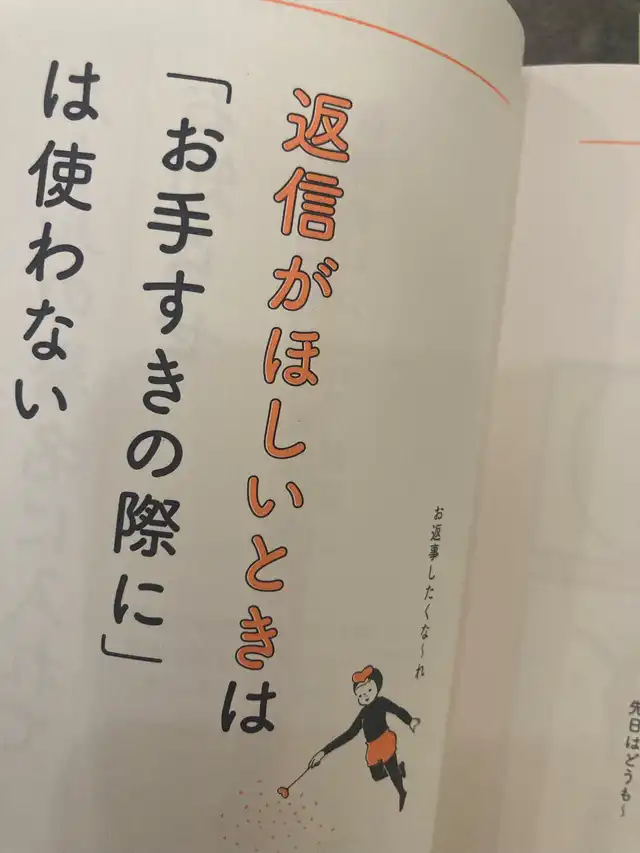 返信がほしいときは
「お手すきの際に」
は使わない
お返事したくな〜れ
先日はどうも〜